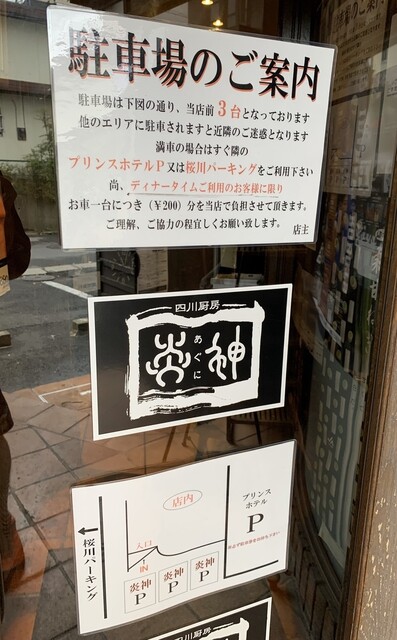 駐車場のご案内
駐車場は下図の通り、当店前3台となっております
他のエリアに駐車されますと近隣のご迷惑となります
満車の場合はすぐ隣の
プリンスホテルP又は桜川パーキングをご利用下さい
尚、ディナータイムご利用のお客様に限り
お車一台につき(¥200)分を当店で負担させて頂きます。
ご理解、ご協力の程宜しくお願い致します。
店主
四川厨房
炎神
あぐに
店内
入口
IN
炎神
P
炎神
P
炎神
P
プリンス
ホテル
P
←桜川パーキング
四川厨房